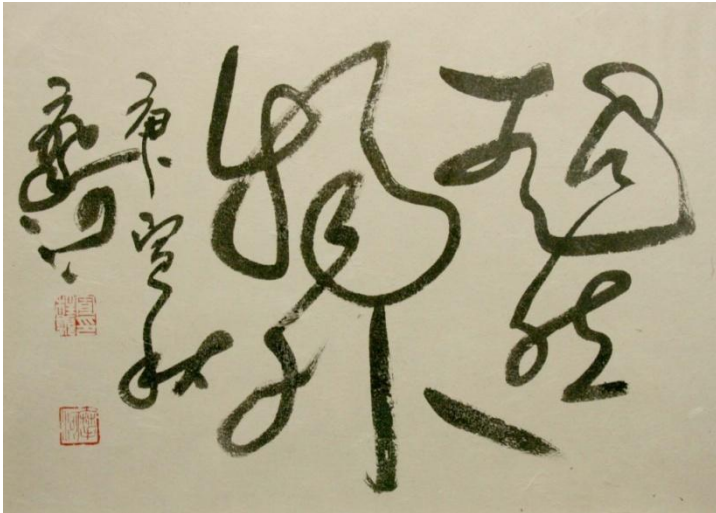 超然
物外
庚寅秋